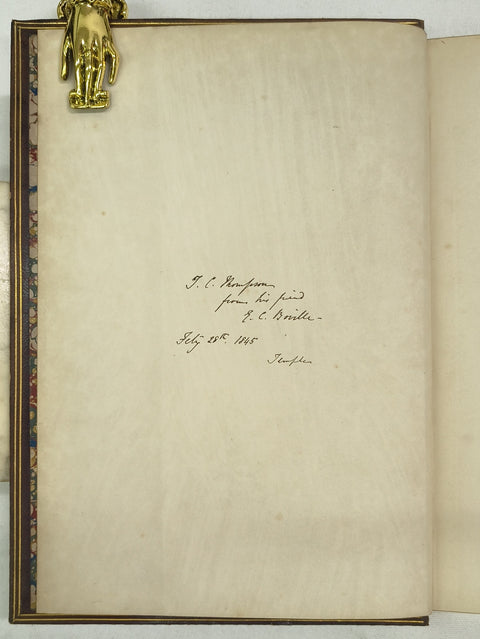 T. C. Thompson
from his friend
E. C. Boville -
Feby 28th. 1845
Temple